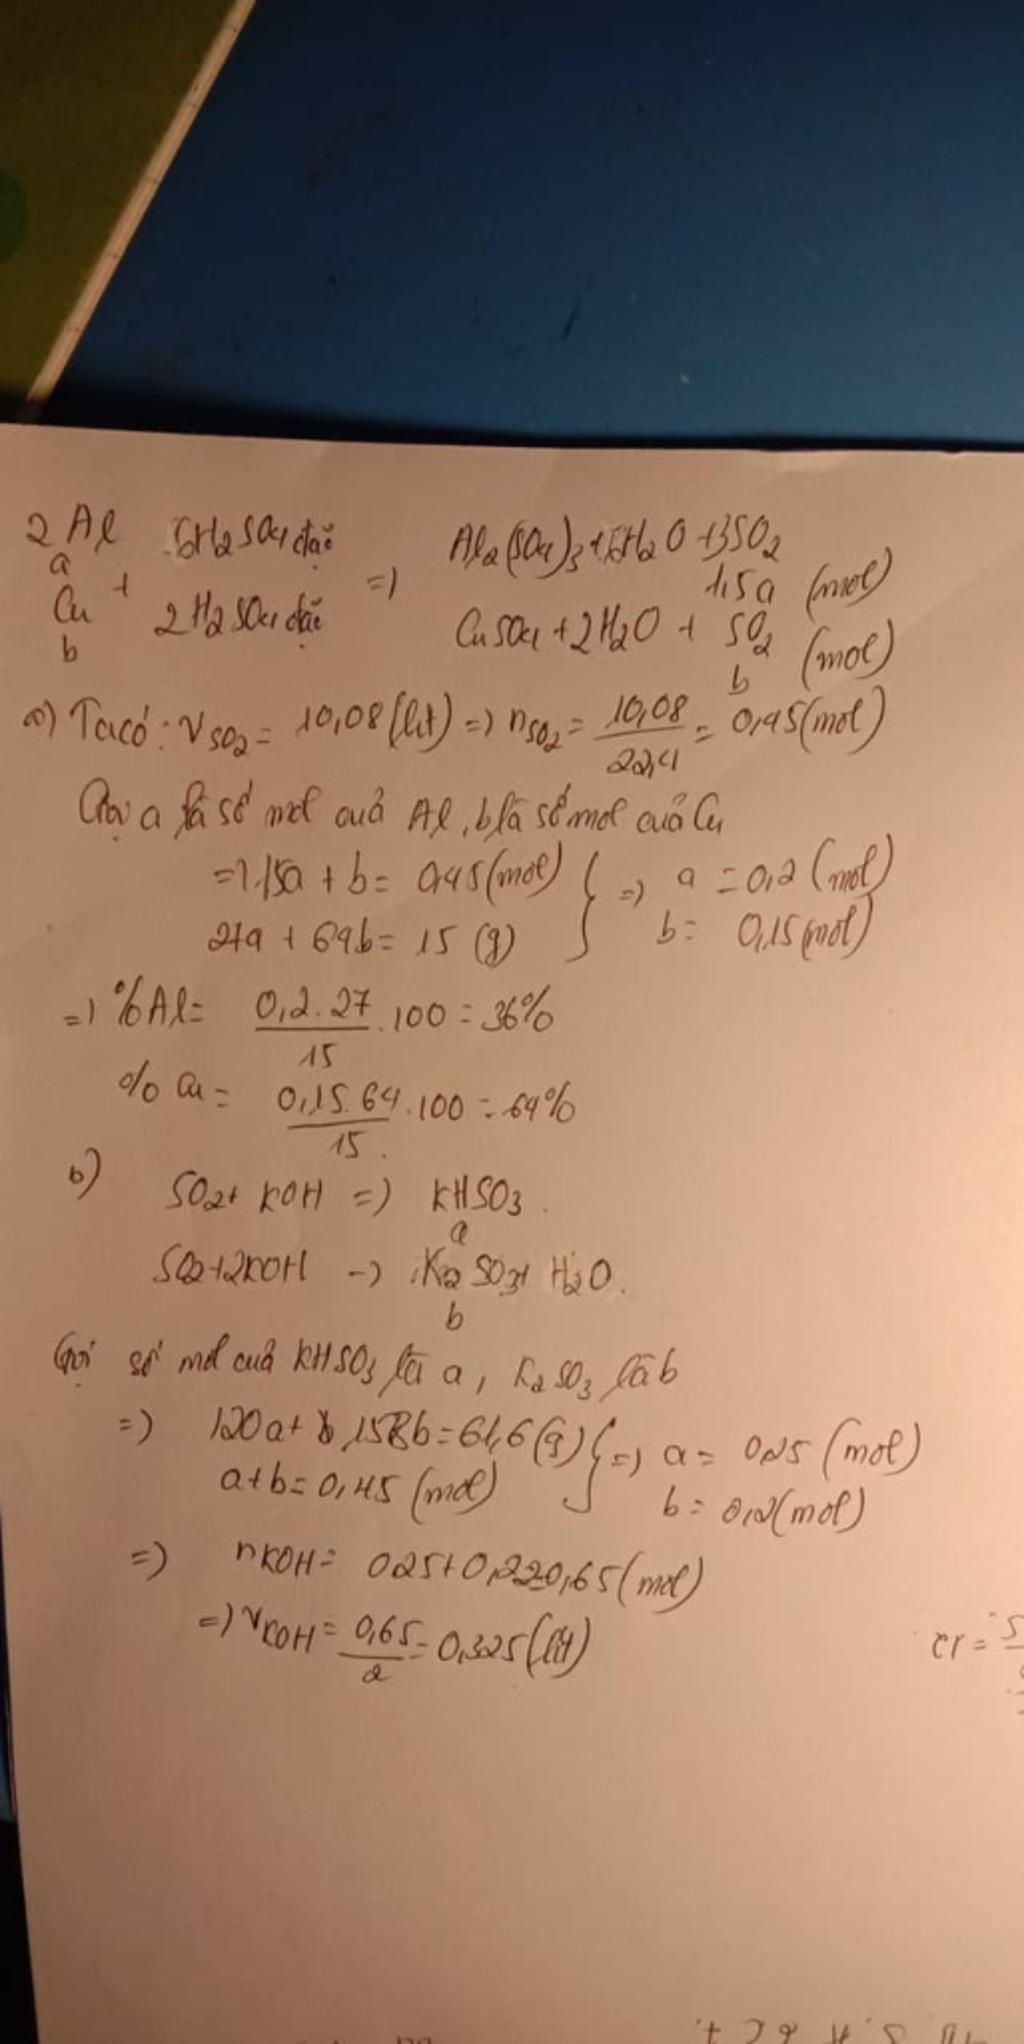 2Al 6H2SO4 đặc Al2(SO4)3 + 6H2O + 3SO2
a + => 1,5a (mol)
Cu 2H2SO4 đặc CuSO4 + 2H2O + SO2
b b (mol)
a) Ta có: VSO2 = 10,08 (lít) => nSO2 = 10,08/22,4 = 0,45 (mol)
Gọi a là số mol của Al, b là số mol của Cu
=> 1,5a + b = 0,45 (mol) } => a = 0,2 (mol)
27a + 64b = 15 (g) b = 0,15 (mol)
=> %Al = 0,2.27/15 .100 = 36%
% Cu = 0,15.64/15 .100 = 64%
b) SO2 + KOH => KHSO3.
a
SO2 + 2KOH -> K2SO3 + H2O.
b
Gọi số mol của KHSO3 là a, K2SO3 là b
=> 120a + 158b = 61,6 (g) } => a = 0,25 (mol)
a+b = 0,45 (mol) b = 0,2 (mol)
=> nKOH = 0,25 + 0,2.2 = 0,65 (mol)
=> VKOH = 0,65/2 = 0,325 (lít)